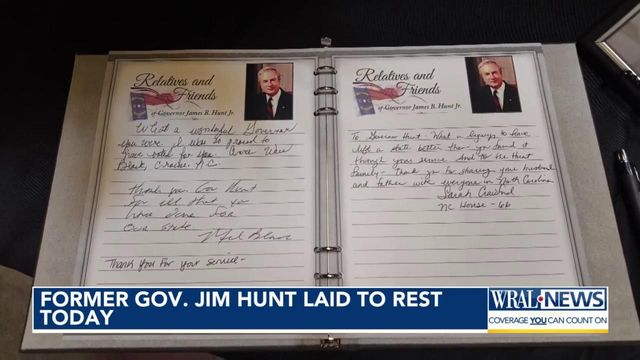 Relatives and
Friends
of Governor James B. Hunt Jr.
What a wonderful Governor
you were. I was so proud to
have voted for you.
Black, N.C.
Thank you Gov Hunt
for all that you
have done for
our state
Thank You For your service-
Relatives and
Friends
of Governor James B. Hunt Jr.
To Governor Hunt- What a legacy to have
left a state better than you found it
through your service. And to the Hunt
Family- Thank you for sharing your husband
and father with everyone in North Carolina
Sarah Crawford
NC House - 66
FORMER GOV. JIM HUNT LAID TO REST
TODAY
WRAL NEWS
COVERAGE YOU CAN COUNT ON